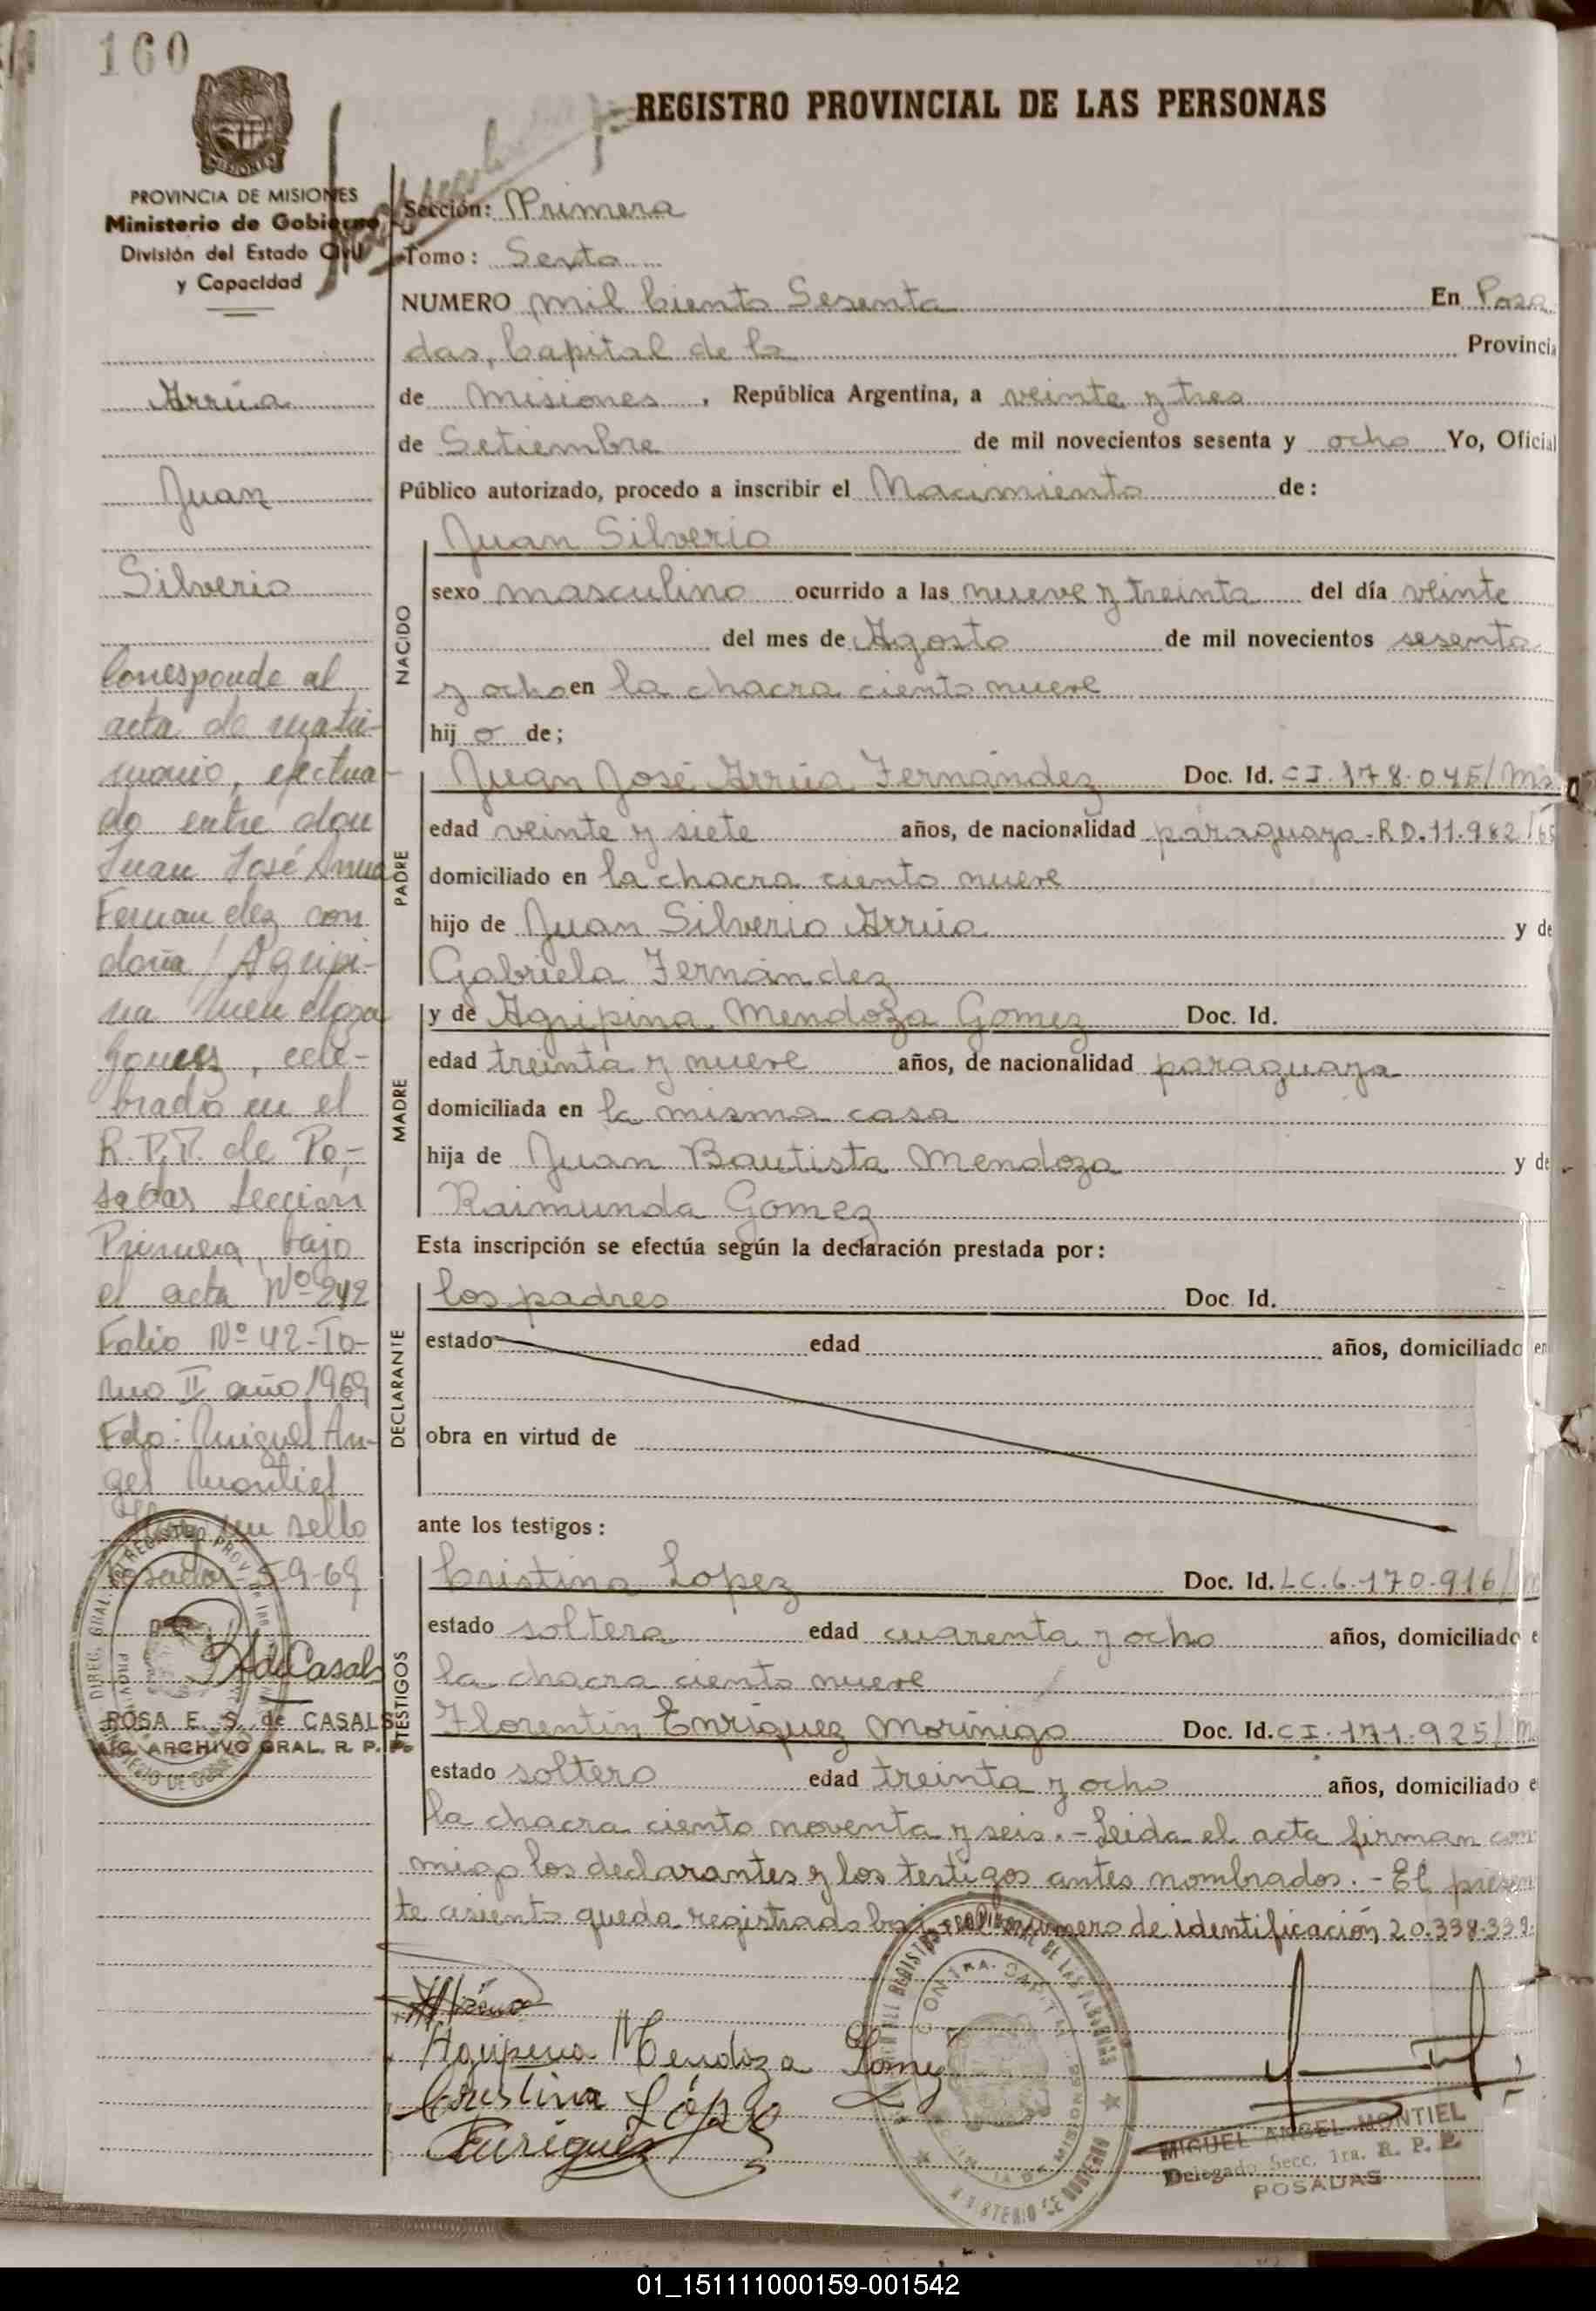 160
REGISTRO PROVINCIAL DE LAS PERSONAS
MISIONES
PROVINCIA DE MISIONES
Ministerio de Gobierno
División del Estado Civil
y Capacidad
Arrúa
Juan
Silverio
Corresponde al
acta de matri-
monio, efectua-
do entre don
Juan José Arrua
Fernandez con
doña Agripi-
na Mendoza
Gomez, cele-
brado en el
R.P.P. de Po-
sadas Sección
Primera, bajo
el acta Nº 242
Folio Nº 42-To-
mo II año 1969
Fdo: Miguel An-
gel Montiel
un sello
Posadas-5-9-69
ROSA E. S. de CASALS
ARCHIVO GRAL. R. P. P.
Sección: Primera
Tomo: Sexto
NUMERO mil ciento Sesenta En Posa
das, Capital de la Provincia
de Misiones, República Argentina, a veinte y tres
de Setiembre de mil novecientos sesenta y ocho Yo, Oficial
Público autorizado, procedo a inscribir el Nacimiento de:
NACIDO
Juan Silverio
sexo masculino ocurrido a las nueve y treinta del día veinte
del mes de Agosto de mil novecientos sesenta
y ocho en la chacra ciento nueve
hij o de;
PADRE
Juan José Arrúa Fernández Doc. Id. CI.178.045/Ms
edad veinte y siete años, de nacionalidad paraguaya-RD.11.982/65
domiciliado en la chacra ciento nueve
hijo de Juan Silverio Arrúa y de
Gabriela Fernández
MADRE
y de Agripina Mendoza Gomez Doc. Id.
edad treinta y nueve años, de nacionalidad paraguaya
domiciliada en la misma casa
hija de Juan Bautista Mendoza y de
Raimunda Gomez
Esta inscripción se efectúa según la declaración prestada por:
DECLARANTE
los padres Doc. Id.
estado edad años, domiciliado en
obra en virtud de
ante los testigos:
TESTIGOS
Cristina Lopez Doc. Id. LC.6.170.916/M
estado soltera edad cuarenta y ocho años, domiciliado e
la chacra ciento nueve
Florentín Enriquez Morínigo Doc. Id. CI.171.925/M
estado soltero edad treinta y ocho años, domiciliado e
la chacra ciento noventa y seis.-Leida el acta firman con
migo los declarantes y los testigos antes nombrados.-El presen
te asiento queda registrado bajo el número de identificación 20.338.339.
Agripina Mendoza Gomez
Cristina López
Enriquez
MIGUEL ANGEL MONTIEL
Delegado Secc. 1ra. R. P. P.
POSADAS
01_151111000159-001542